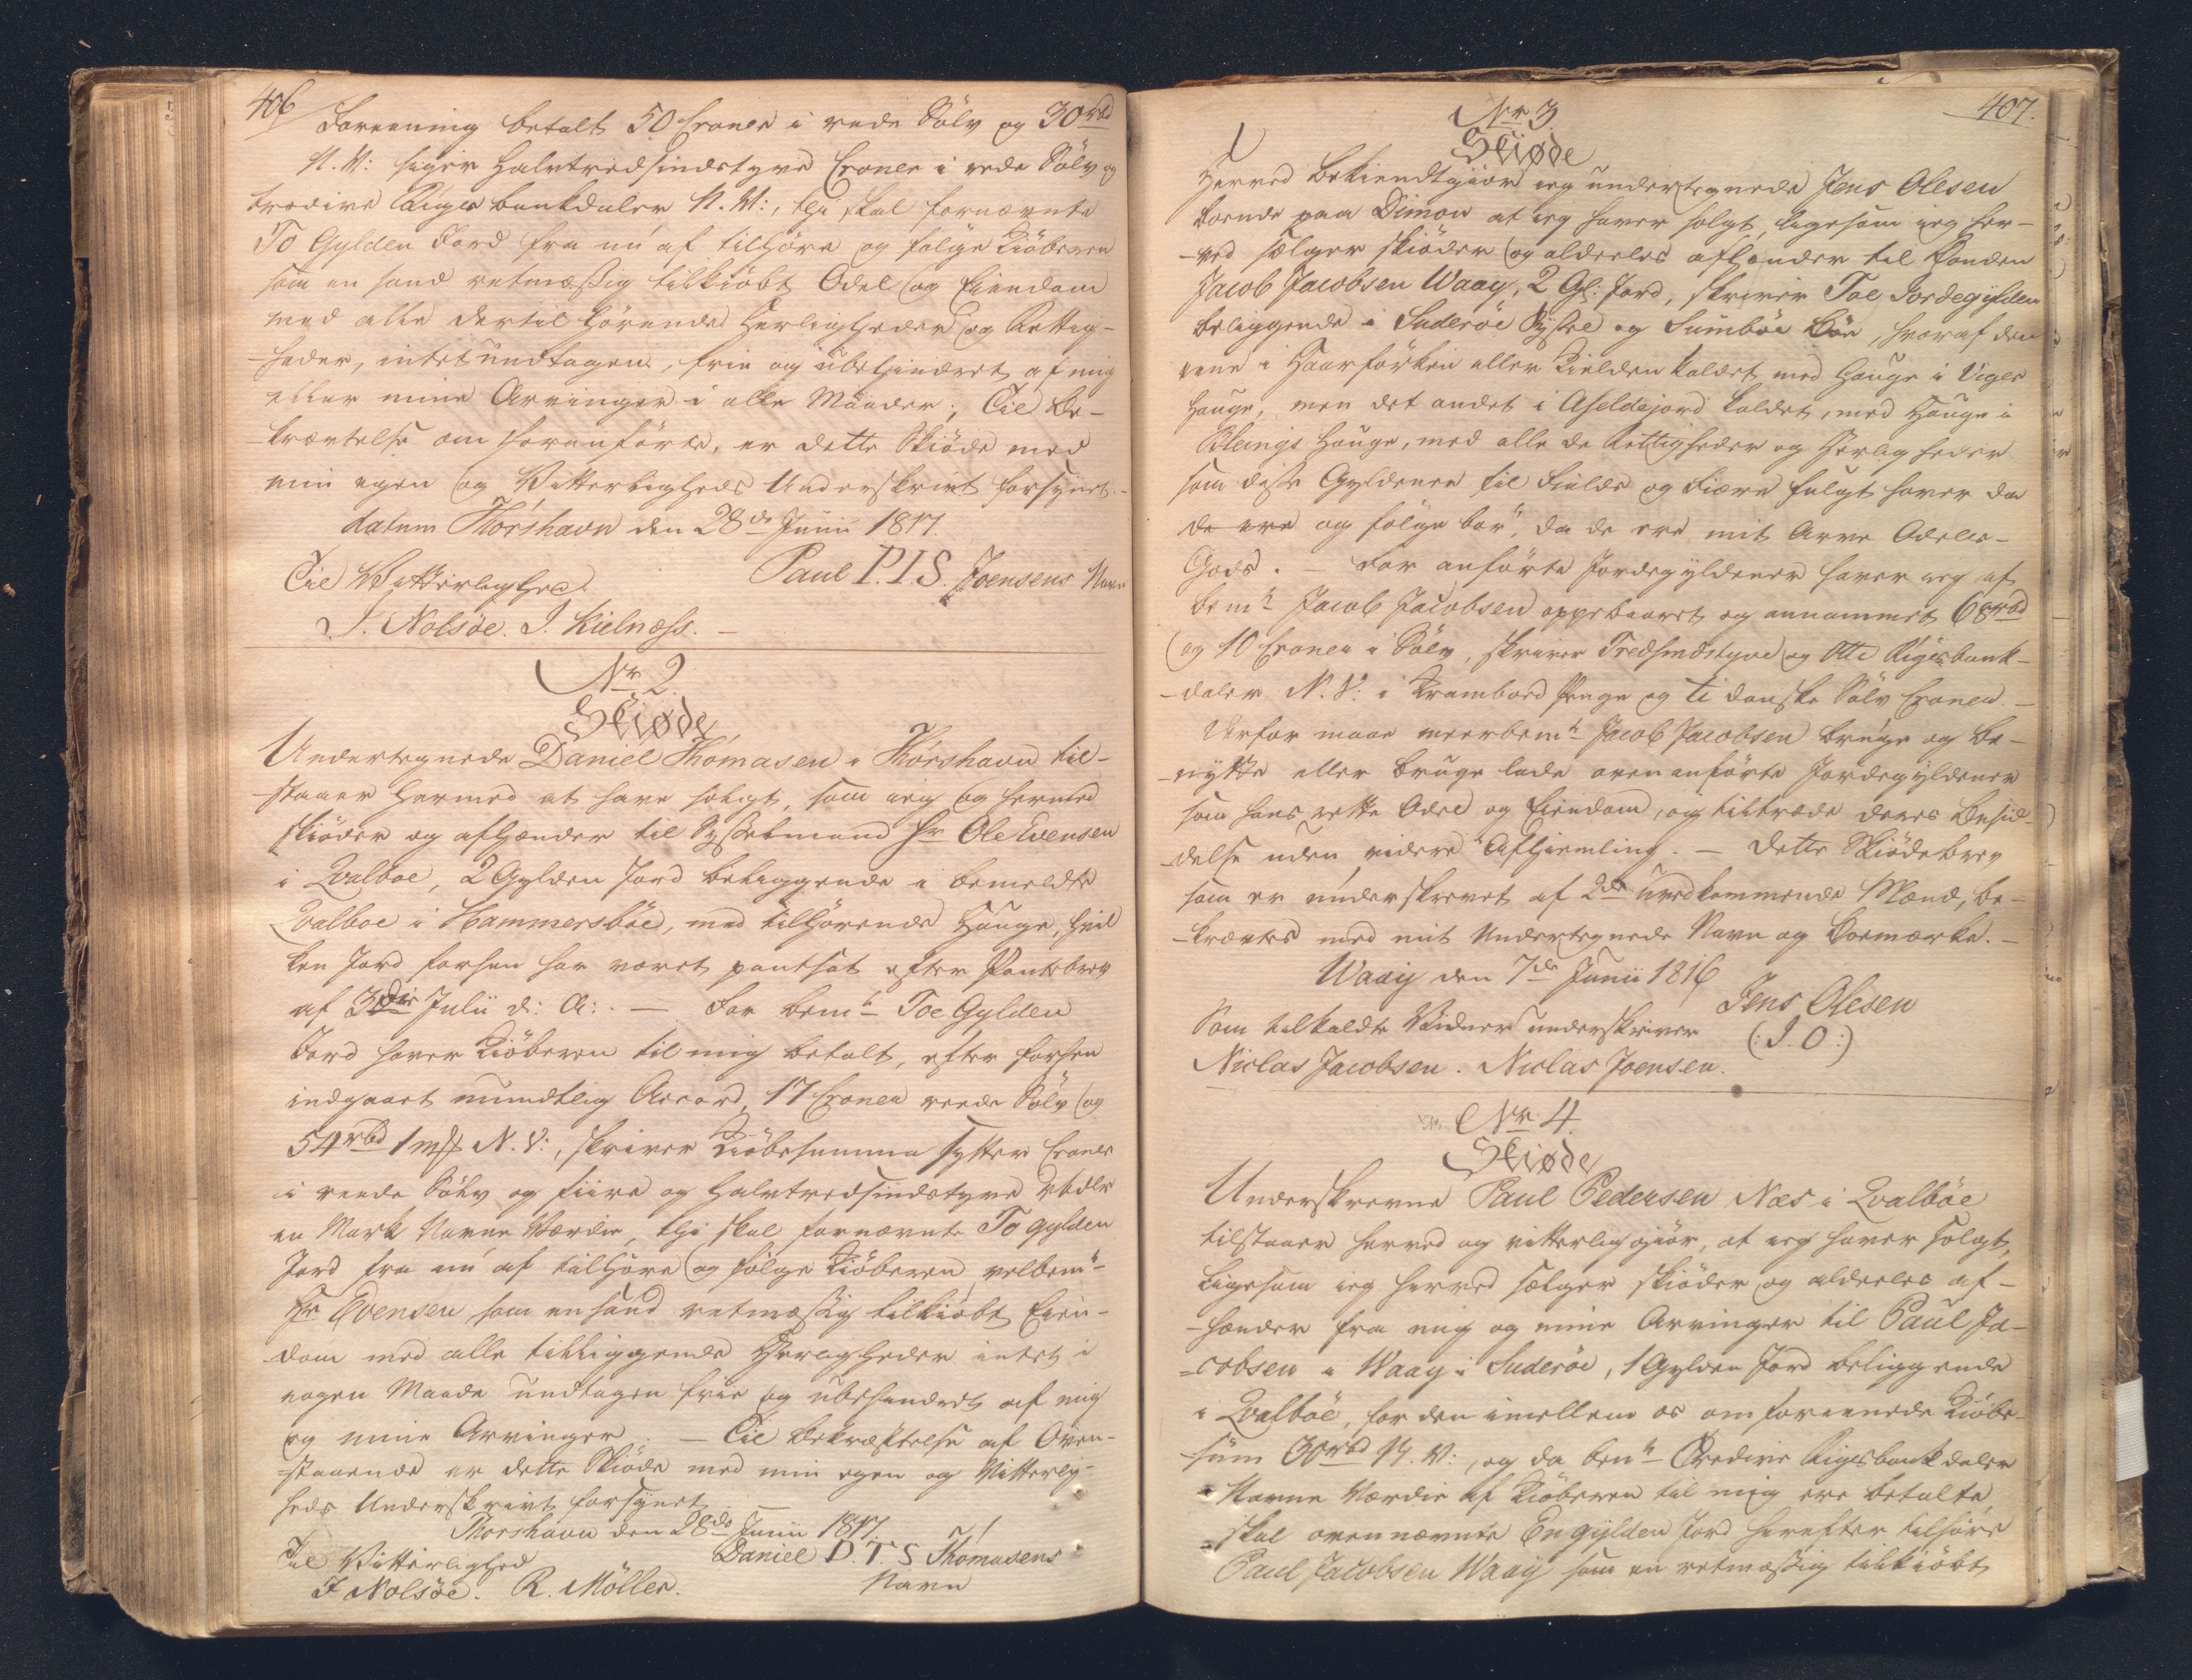 406
Foreening betalt 50 Croner i rede Sölv og 30 rbd
N. V: siger Halvtredsindstyve Croner i rede Sölv og
tredive Rigsbankdaler N. V:, thi skal fornævnte
To Gylden Jord fra nu af tilhöre og fölge Kiöberen
som en sand retmæssig tilkiöbt Odel og Eiendom
med alle dertil hörende Herligheder og Rettig-
-heder, intet undtagen, frie og ubehindret af mig
eller mine Arvinger i alle Maader; Til Be-
kræftelse om foranförte, er dette Skiöde med
min egen og Vitterligheds Underskrivt forsynet.-
datum Thorshavn den 28de Junii 1817.
Til Vitterlighed Paul P.I.S. Joensens Navn
J. Nolsöe. J. Kielnæss. —
Nr 2.
Skiøde
Undertegnede Daniel Thomasen i Thorshavn til-
-staaer hermed at have solgt, som ieg og hermed
skiöder og afhænder til Sysselmand Hr Ole Evensen
i Qvalboe, 2 Gylden Jord beliggende i bemeldte
Qvalboe i Hammersböe, med tilhörende Hauge, hvil
ken Jord forhen har været pantsat efter Pantebrev
af 3die Julii d: A: . — For bemte Toe Gylden
Jord haver Kiöberen til mig betalt, efter forhen
indgaaet mundtlig Accord, 17 Croner reede Sölv og
54 rbd 1 mk N. V:, skriver Kiöbesumma sytten Croner
i reede Sölv og fiire og halvtredsindstyve Rbdlr
en Mark Navne Værdie, thi skal fornævnte To gylden
Jord fra nu af tilhöre og fölge Kiöberen velbemte
Hr Evensen som en sand retmæssig tilkiöbt Eien-
dom med alle tilliggende Herligheder intet i
nogen Maade undtagen frie og ubehindret af mig
og mine Arvinger. — Til Bekræftelse af Oven-
-staaende er dette Skiöde med min egen og Vitterlig-
heds Underskrivt forsynet
Thorshavn den 28de Junii 1817.
Til Vitterlighed Daniel D.T.S Thomasens
J Nolsöe. R. Möller. Navn
407.
Nr 3.
Skiøde
Herved bekiendtgiör ieg undertegnede Jens Olesen
boende paa Dimon at ieg haver solgt, ligesom ieg her-
-ved sælger skiöder og aldeeles afhænder til Bonden
Jacob Jacobsen Waaÿ, 2 Gl: Jord, skriver Toe Jordegylden
beliggende i Suderöe Syssel og Sumböe Böe, hvoraf den
eene i Haarförken eller Kielden kaldet med Hauge i Viger
Hauge, men det andet i Aseldejord kaldet, med Hauge i
Bleings Hauge, med alle de Rettigheder og Herligheder
som disse Gyldener til Fields og Fiære fulgt haver da
de ere og fölge bör, da de ere mit Arve Odels-
Gods. — For anförte Jordegyldener haver ieg af
bemte Jacob Jacobsen oppebaaret og annammet 68 rbd
og 10 Croner i Sölv, skriver Tredsindstyve og Otte Rigsbank-
-daler N. V: i Krambod Penge og ti danske Sölv Croner. —
Derfor maae meerbemte Jacob Jacobsen bruge og be-
-nytte eller bruge lade ovenanförte Jordegyldener
som hans rette Odel og Eiendom, og tiltræde deres Besid-
-delse uden videre Afhiemling. — Dette Skiödebrev
som er underskrevet af 2de uvedkommende Mænd, be-
-kræftes med mit Undertegnede Navn og Boemærke. —
Waaiy den 7de Junii 1816
Jens Olesen
Som tilkaldte Vidner underskriver (: I. O :)
Niclas Jacobsen. Niclas Joensen.
Nr 4.
Skiøde
Underskrevne Paul Pedersen Næs i Qvalböe
tilstaaer herved og vitterliggiör, at ieg haver solgt,
Ligesom ieg herved sælger skiöder og aldeeles af-
-hænder fra mig og mine Arvinger til Paul Ja-
-cobsen i Waag i Suderöe, 1 Gylden Jord beliggende
i Qvalböe, for den imellem os omforeenede Kiöbe-
-sum 30 rbd N. V:, og da bemte Tredive Rigsbankdaler
Navne Værdie af Kiöberen til mig ere betalte,
skal ovennævnte En gylden Jord herefter tilhöre
Paul Jacobsen Waaÿ som en retmæssig tilkiöbt